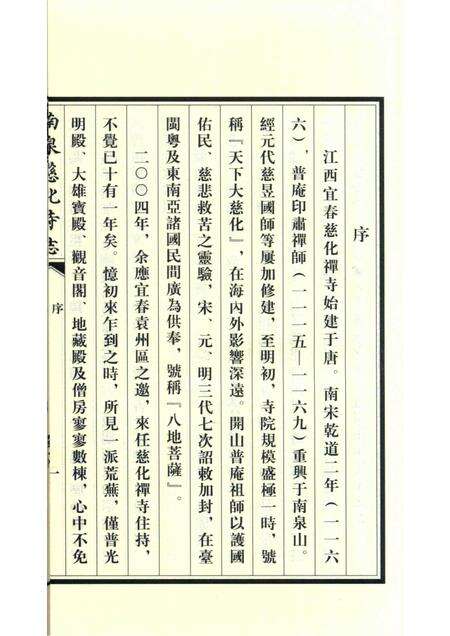 序
江西宜春慈化禪寺始建于唐。南宋乾道二年（一一六
六），普庵印肅禪師（一一一五—一一六九）重興于南泉山。
經元代慈昱國師等屢加修建，至明初，寺院規模盛極一時，號
稱『天下大慈化』，在海內外影響深遠。開山普庵祖師以護國
佑民、慈悲救苦之靈驗，宋、元、明三代七次詔敕加封，在臺
閩粵及東南亞諸國民間廣為供奉，號稱『八地菩薩』。
二〇〇四年，余應宜春袁州區之邀，來任慈化禪寺住持，
不覺已十有一年矣。憶初來乍到之時，所見一派荒蕪，僅普光
明殿、大雄寶殿、觀音閣、地藏殿及僧房寥寥數棟，心中不免
南泉慈化寺志
序
一